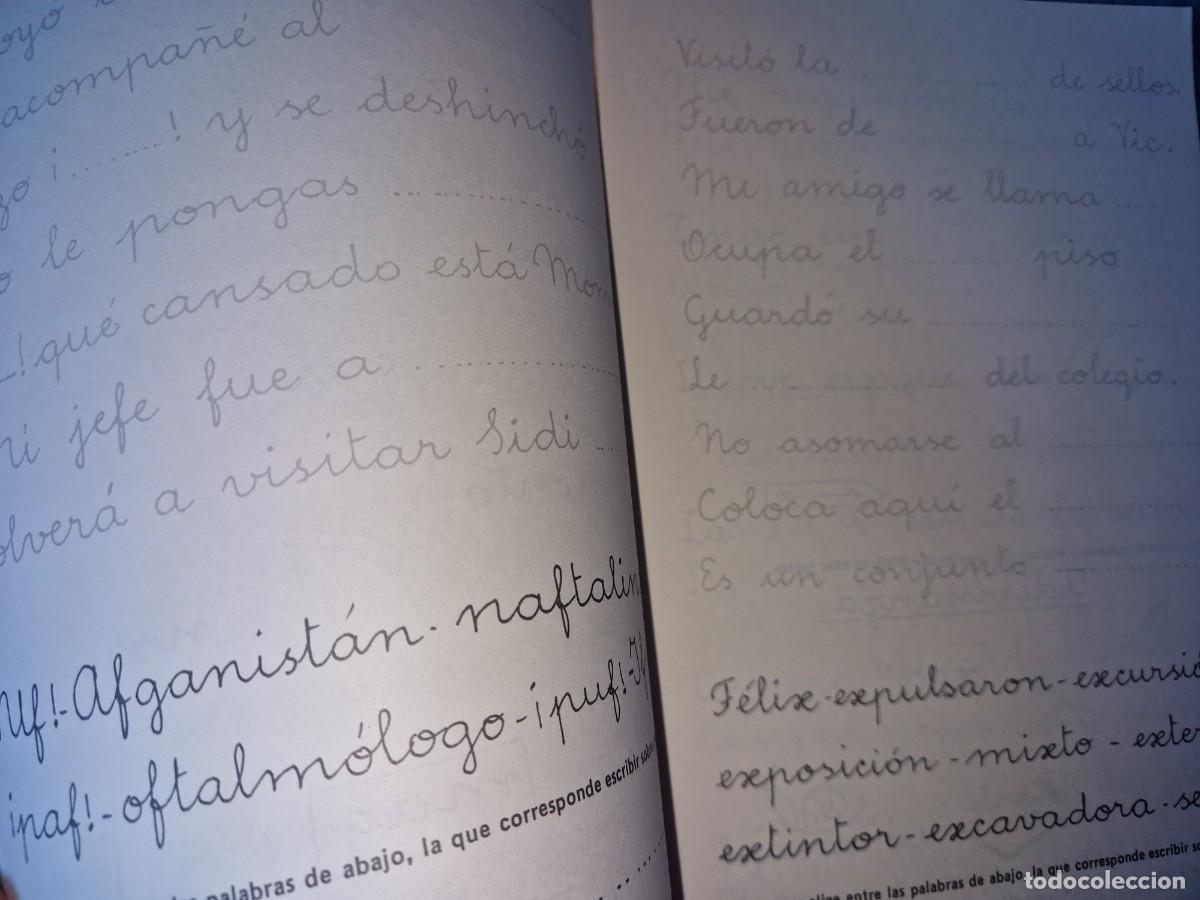 acompañé al
¡........! y se deshinchó
le pongas ............
! qué cansado está
jefe fue a ............
a visitar Sidi ....
Afganistán - naftalin
¡paf! - oftalmólogo - ¡puf! -
palabras de abajo, la que corresponde escribir
Visitó la ............ de sellos.
Fueron de ............ a Vic.
Mi amigo se llama ......
Ocupa el ............ piso
Guardó su ............
Le ............ del colegio.
No asomarse al ............
Coloca aquí el ............
Es un conjunto ............
Félix - expulsaron - excursió
exposición - mixto - exter
extintor - excavadora - se
entre las palabras de abajo, la que corresponde escribir
todocoleccion